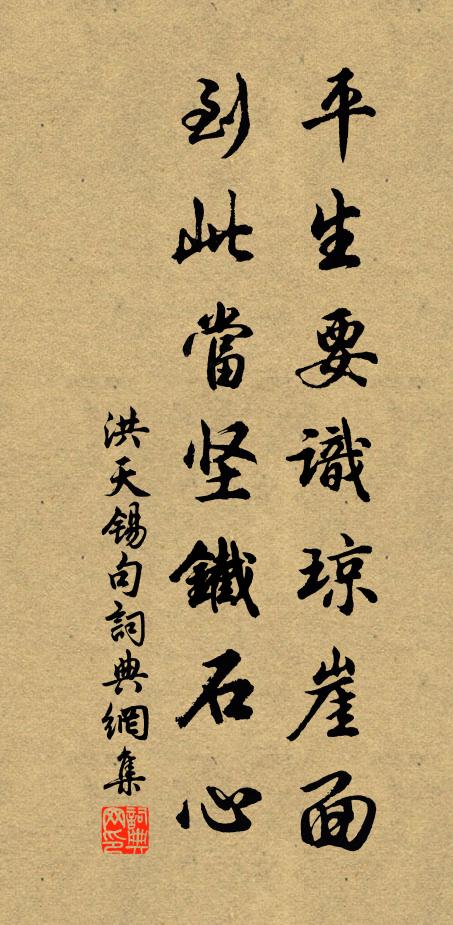 平生要識琼崖面
到此當坚鐵石心
洪天锡句詞典網集
詞典网印